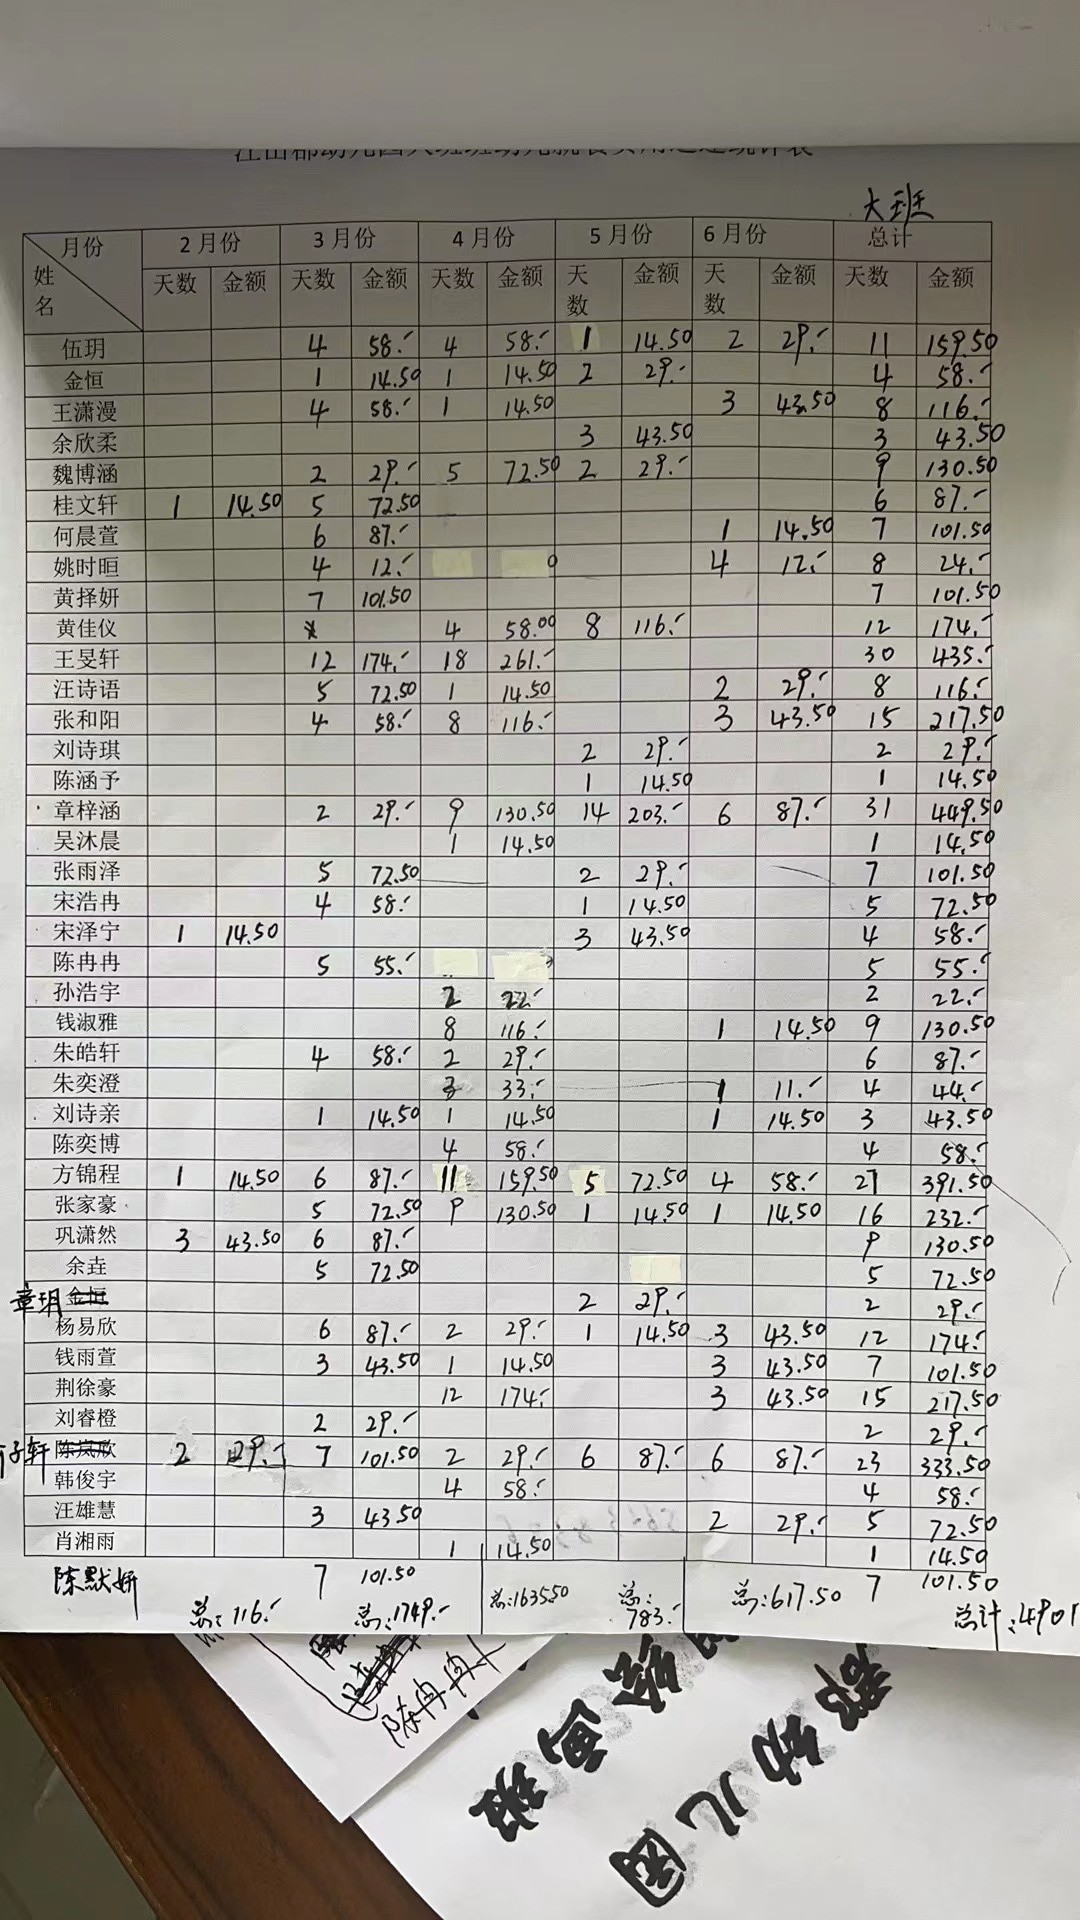 大班
月份 2月份 3月份 4月份 5月份 6月份 总计
姓名 天数 金额 天数 金额 天数 金额 天数 金额 天数 金额 天数 金额
伍玥 4 58.- 4 58.- 1 14.50 2 29.- 11 159.50
金恒 1 14.50 1 14.50 2 29.- 4 58.-
王潇漫 4 58.- 1 14.50 3 43.50 8 116.-
余欣柔 3 43.50 3 43.50
魏博涵 2 29.- 5 72.50 2 29.- 9 130.50
桂文轩 1 14.50 5 72.50 6 87.-
何晨萱 6 87.- 1 14.50 7 101.50
姚时晅 4 12.- 0 4 12.- 8 24.-
黄择妍 7 101.50 7 101.50
黄佳仪 4 58.00 8 116.- 12 174.-
王旻轩 12 174.- 18 261.- 30 435.-
汪诗语 5 72.50 1 14.50 2 29.- 8 116.-
张和阳 4 58.- 8 116.- 3 43.50 15 217.50
刘诗琪 2 29.- 2 29.-
陈涵予 1 14.50 1 14.50
章梓涵 2 29.- 9 130.50 14 203.- 6 87.- 31 449.50
吴沐晨 1 14.50 1 14.50
张雨泽 5 72.50 2 29.- 7 101.50
宋浩冉 4 58.- 1 14.50 5 72.50
宋泽宁 1 14.50 3 43.50 4 58.-
陈冉冉 5 55.- 5 55.-
孙浩宇 2 22.- 2 22.-
钱淑雅 8 116.- 1 14.50 9 130.50
朱皓轩 4 58.- 2 29.- 6 87.-
朱奕澄 3 33.- 1 11.- 4 44.-
刘诗亲 1 14.50 1 14.50 1 14.50 3 43.50
陈奕博 4 58.- 4 58.-
方锦程 1 14.50 6 87.- 11 159.50 5 72.50 4 58.- 27 391.50
张家豪 5 72.50 9 130.50 1 14.50 1 14.50 16 232.-
巩潇然 3 43.50 6 87.- 9 130.50
余垚 5 72.50 5 72.50
章玥 金恒 2 29.- 2 29.-
杨易欣 6 87.- 2 29.- 1 14.50 3 43.50 12 174.-
钱雨萱 3 43.50 1 14.50 3 43.50 7 101.50
荆徐豪 12 174.- 3 43.50 15 217.50
刘睿橙 2 29.- 2 29.-
子轩 陈岚欣 2 29.- 7 101.50 2 29.- 6 87.- 6 87.- 23 333.50
韩俊宇 4 58.- 4 58.-
汪雄慧 3 43.50 2 29.- 5 72.50
肖湘雨 1 14.50 1 14.50
陈默妍 7 101.50 7 101.50
总:116.- 总:1749.- 总:1635.50 总:783.- 总:617.50 总计:4901
陈冉冉
幼儿园
画班